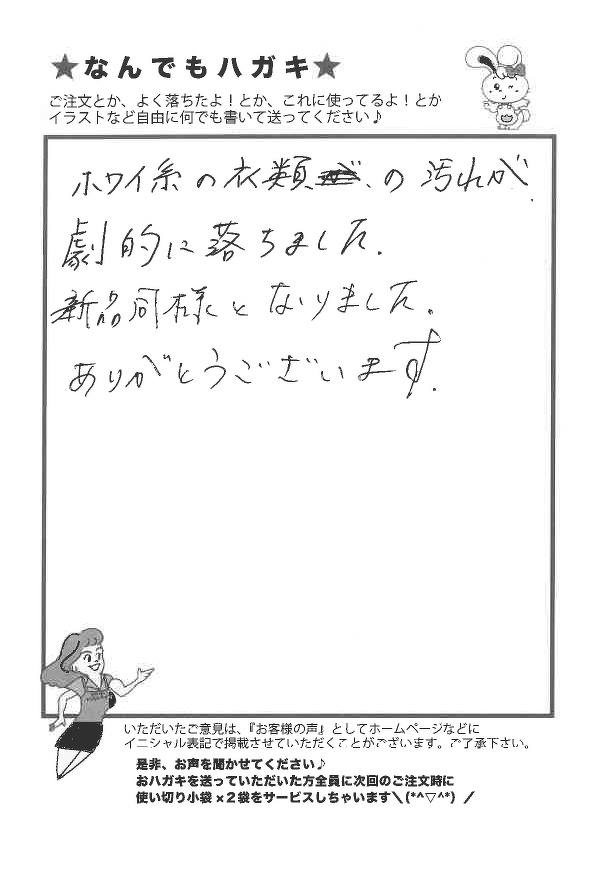 ★なんでもハガキ★
ご注文とか、よく落ちたよ！とか、これに使ってるよ！とか
イラストなど自由に何でも書いて送ってください♪
ホワイ系の衣類の汚れが
劇的に落ちました.
新品同様となりました.
ありがとうございます.
いただいたご意見は、『お客様の声』としてホームページなどに
イニシャル表記で掲載させていただくことがございます。ご了承下さい。
是非、お声を聞かせてください♪
おハガキを送っていただいた方全員に次回のご注文時に
使い切り小袋×２袋をサービスしちゃいます＼(*^▽^*)／